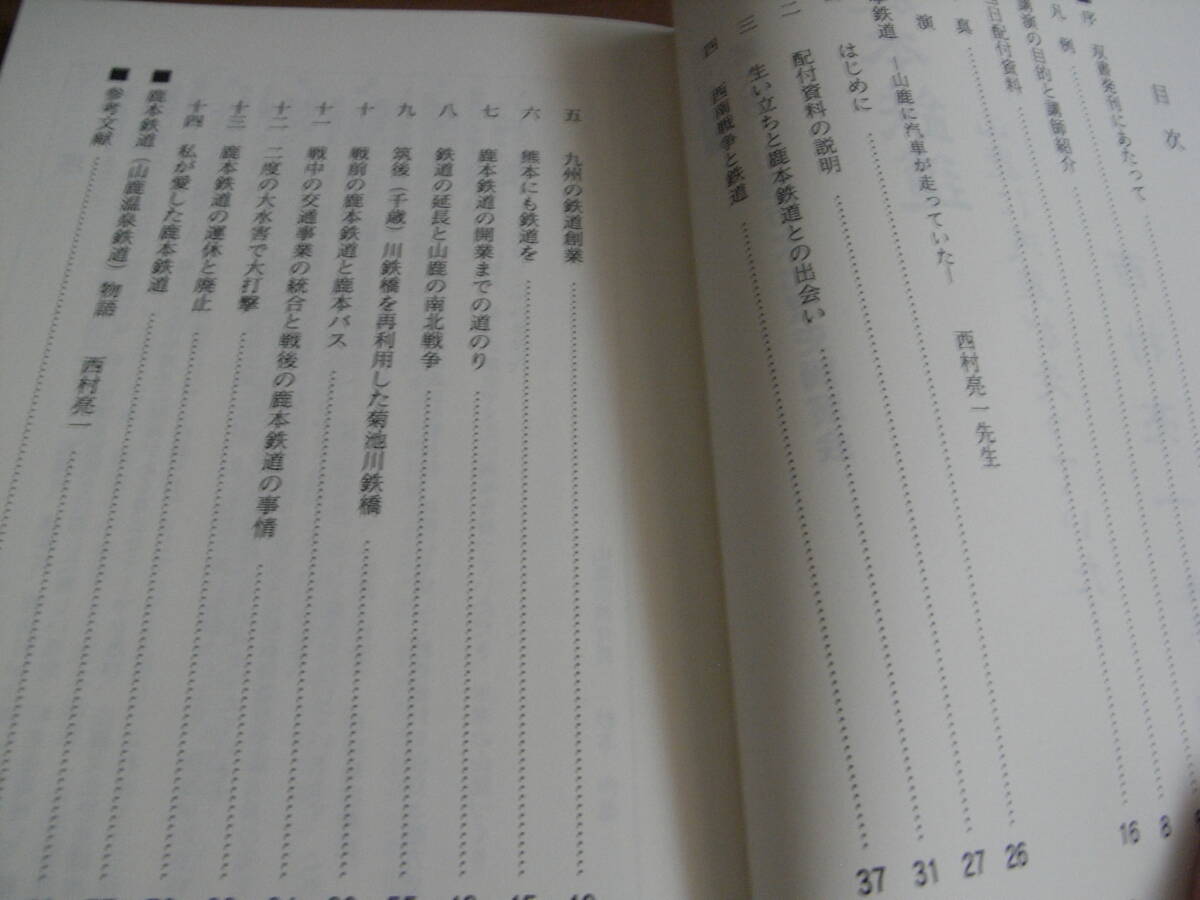 目次
序 双書発刊にあたって
凡例 16
講演の目的と講師紹介
当日配付資料
真
演
本鉄道 ―山鹿に汽車が走っていた― 西村亮一先生
はじめに
二 配付資料の説明
三 生い立ちと鹿本鉄道との出会い
四 西南戦争と鉄道
8
26
27
31
37
五 九州の鉄道創業
六 熊本にも鉄道を
七 鹿本鉄道の開業までの道のり
八 鉄道の延長と山鹿の南北戦争
九 筑後(千歳)川鉄橋を再利用した菊池川鉄橋
十 戦前の鹿本鉄道と鹿本バス
十一 戦中の交通事業の統合と戦後の鹿本鉄道の事情
十二 二度の大水害で大打撃
十三 鹿本鉄道の運休と廃止
十四 私が愛した鹿本鉄道
■鹿本鉄道(山鹿温泉鉄道)物語 西村亮一
■参考文献